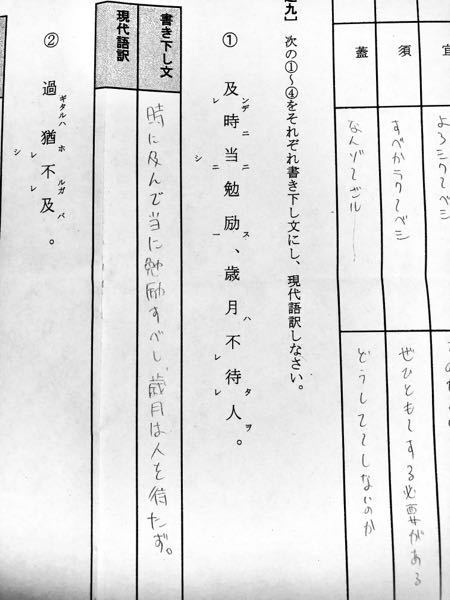 宜 よろシク〜ベシ
須 すべかラク〜ベシ ぜひとも〜する必要がある
蓋 なんゾ〜ザル どうして〜しないのか
九】 次の①〜④をそれぞれ書き下し文にし、現代語訳しなさい。
① 及ンデレ時ニ当ニニシ勉励ス一、歳月ハ不レ待タレ人ヲ。
書き下し文 時に及んで当に勉励すべし、歳月は人を待たず。
現代語訳
② 過ギタルハ猶ホレシ不ルガレ及バ。